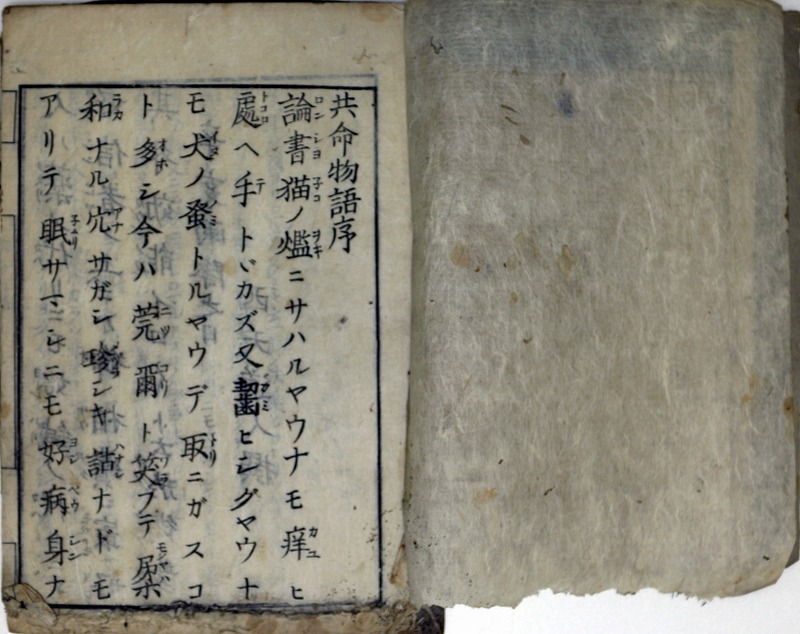 共命物語序
論書猫ノ爁ニサハルヤウナモ痒ヒ
處ヘ手トヾカズ又齧ヒシグヤウナ
モ犬ノ蚤トルヤウデ取ニガスコ
ト多シ今ハ莞爾ト笑フテ屎
和ナル穴サガシ珍シキ話ナドモ
アリテ眠サマシニモ好病身ナ